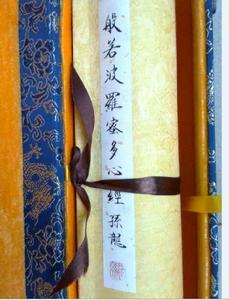 般若波羅蜜多心經孫龍